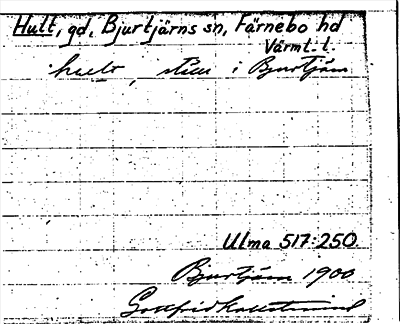 Hult, gd, Bjurtjärns sn, Färnebo hd
Värml. l.
i Bjurtjärn
Ulma 517:250
Bjurtjärn 1900
Gottfrid Kallstenius